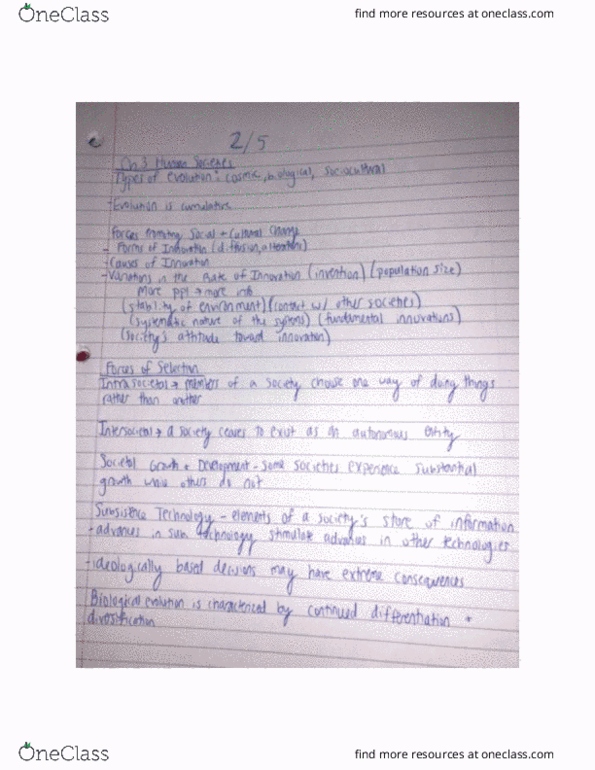 OneClass
find more resources at oneclass.com
2/5
Ch 3 Human Societies
Types of evolution: cosmic, biological, sociocultural
-Evolution is cumulative
Forces Promoting Social + Cultural Change
- Forms of Innovation (diffusion, alteration)
-Causes of Innovation
-Variations in the Rate of Innovation (invention) (population size)
More ppl → more info
(stability of environment) (contact w/ other societies)
(systematic nature of the systems) (fundamental innovations)
(society's attitude toward innovation)
Forces of Selection
Intrasocietal → members of a society choose one way of doing things
rather than another
Intersocietal → a society ceases to exist as an autonomous entity
Societal Growth + Development - some societies experience substantial
growth while others do not
Subsistence Technology - elements of a society's store of information
-advances in sub. technology stimulate advances in other technologies
-ideologically based decisions may have extreme consequences
Biological evolution is characterized by continued differentiation +
diversification
OneClass
find more resources at oneclass.com